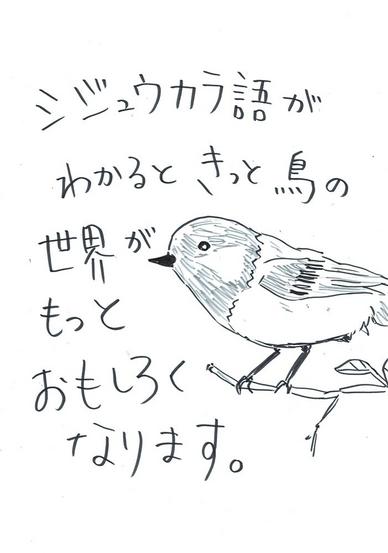 シジュウカラ語が
わかると きっと 鳥の
世界が
もっと
おもしろく
なります。